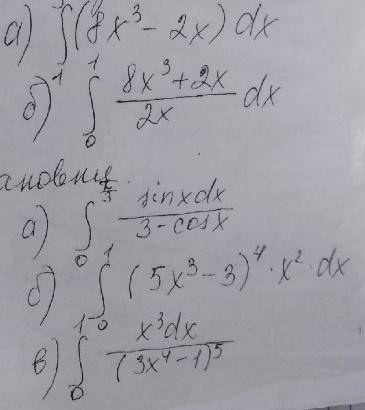 а) ∫₋₁ (8x³ - 2x) dx
б) ∫₀¹ (8x³ + 2x)/(2x) dx
ановки
а) ∫₀^(π/3) sinxdx/(3 - cosx)
б) ∫₀¹ (5x³ - 3)⁴ · x² · dx
в) ∫₀¹ x³dx/(3x⁴ - 1)⁵